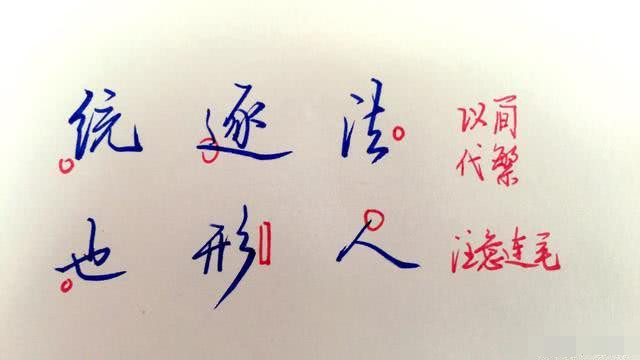 统 逐 法 以简
代繁
也 形 人 注意连笔